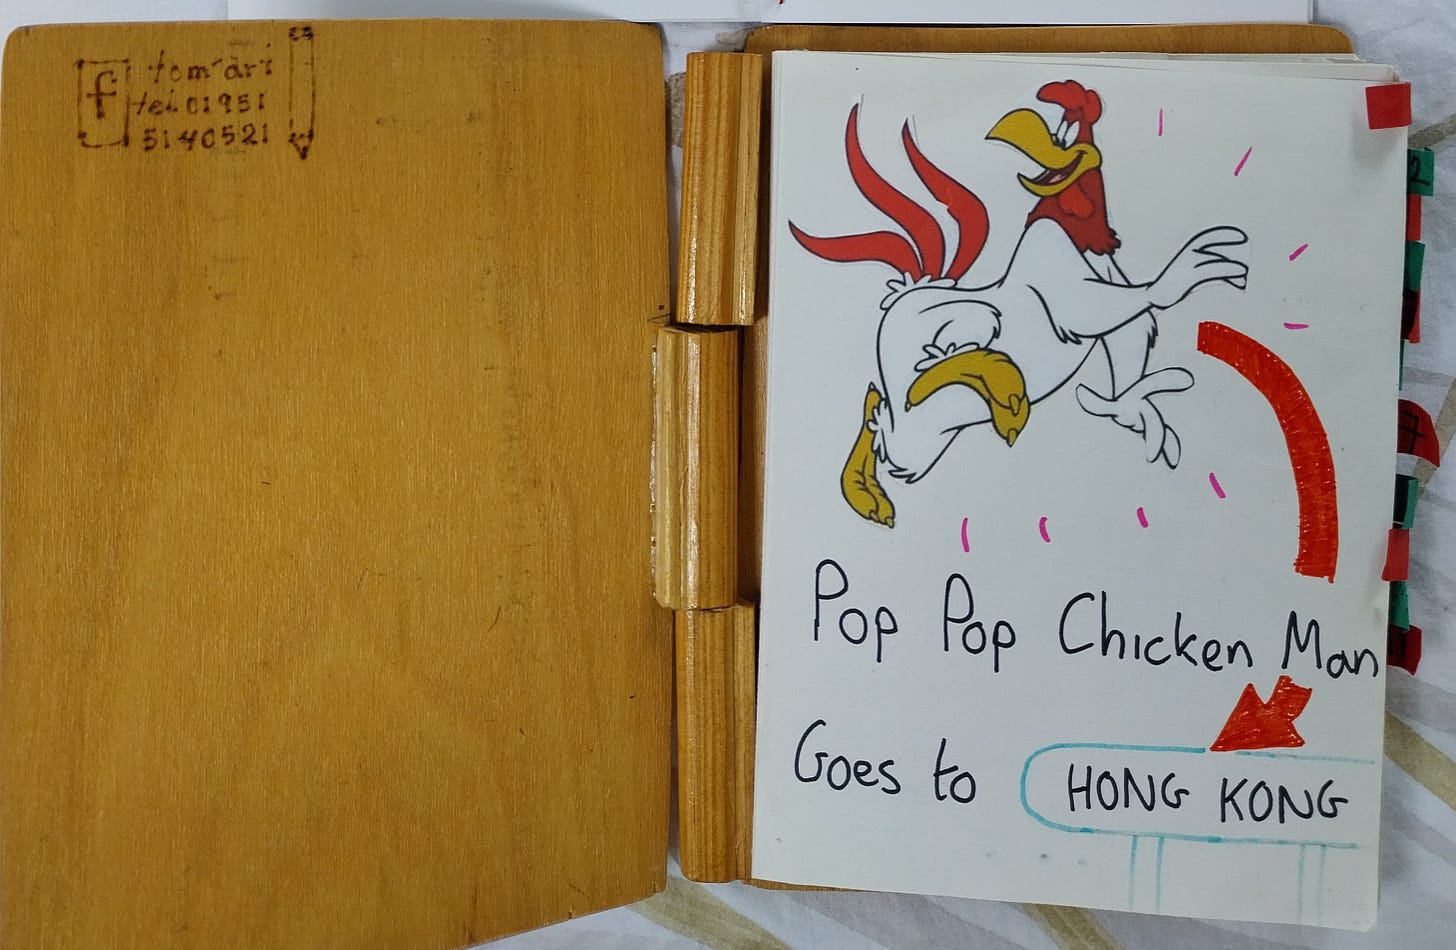 f tom art
tel 01951
5140521
Pop Pop Chicken Man
Goes to HONG KONG
2
7